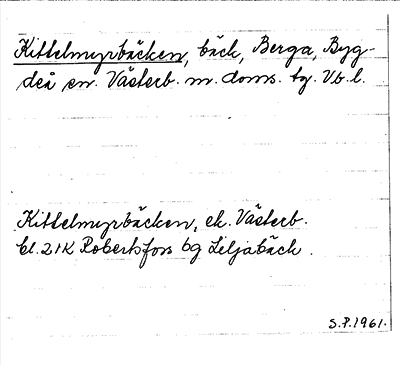 Kittelmyrbäcken, bäck, Berga, Byg-
deå sn. Västerb. m. doms. tg. Vb.l.
Kittelmyrbäcken, ek. Västerb.
bl. 21K Robertsfors bg Liljabäck.
S.P.1961.